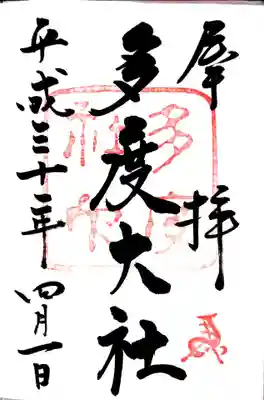 奉拝
多度大社
平成三十年四月一日